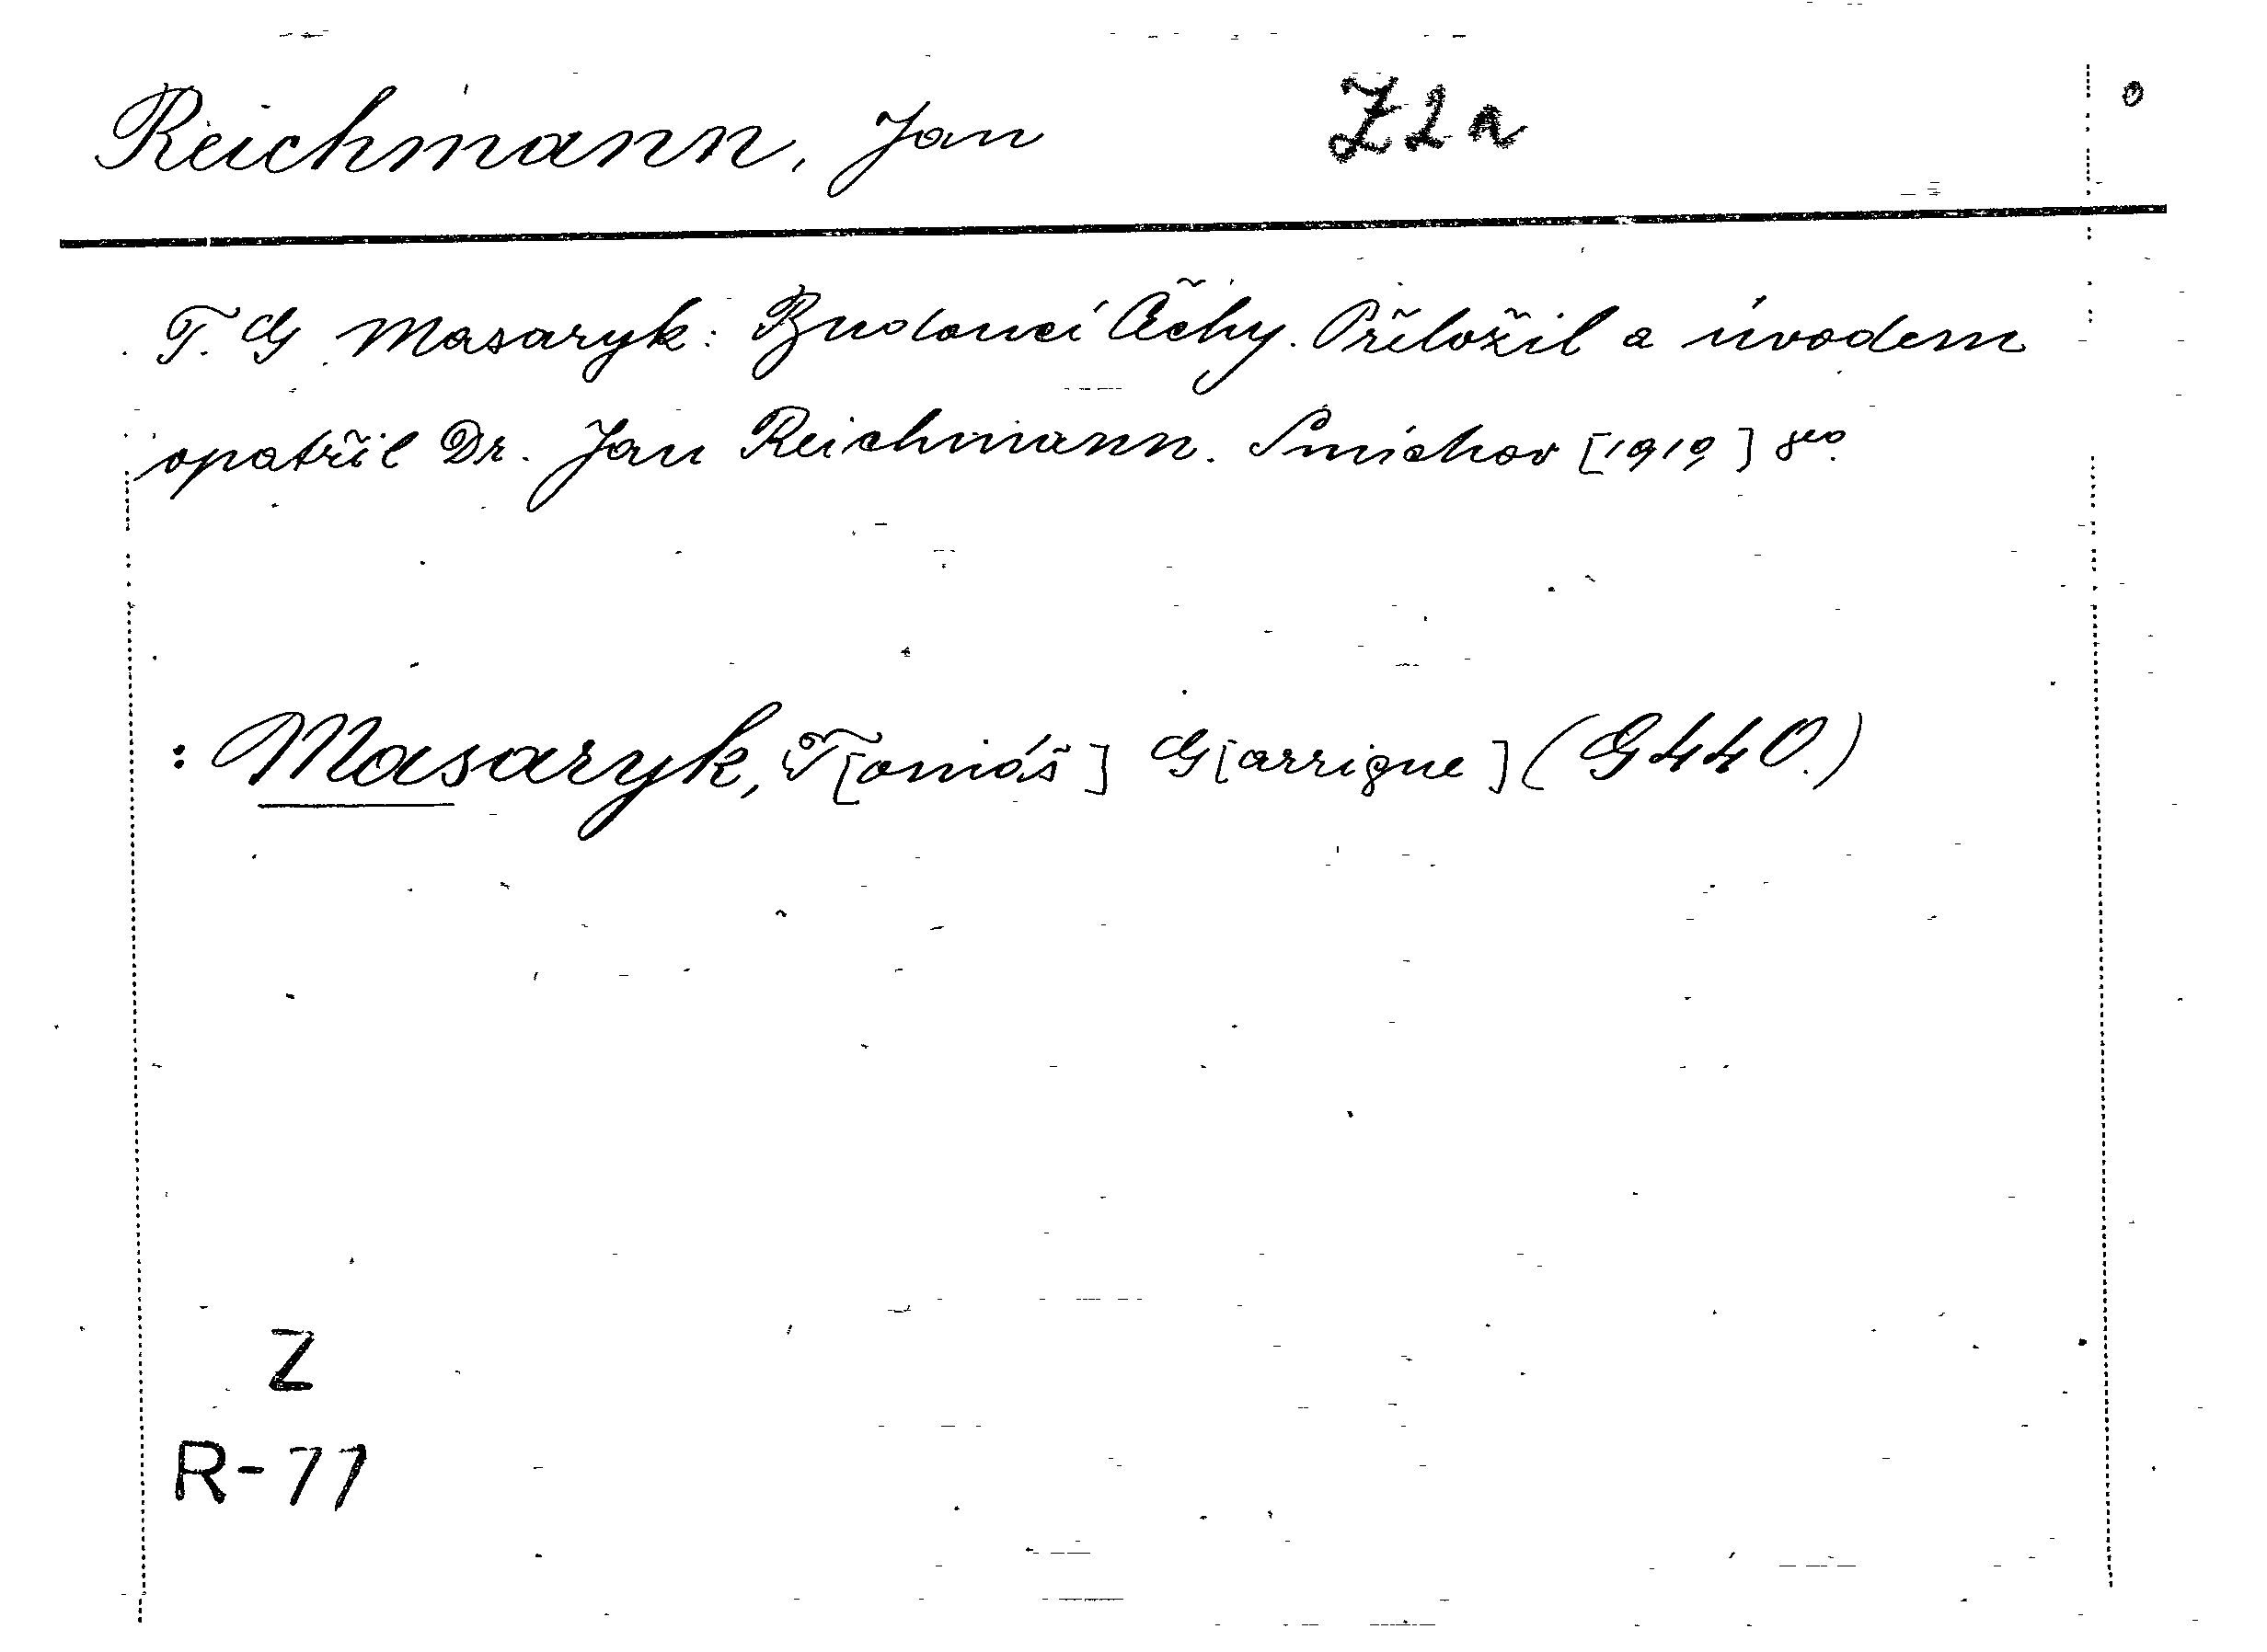 Reichmann, Jan Z2a
T. G. Masaryk: Budoucí Čechy. Přeložil a úvodem
opatřil Dr. Jan Reichmann. Smíchov [1919] 8vo.
: Masaryk, T[omáš] G[arrigue] (G440.)
Z
R-77